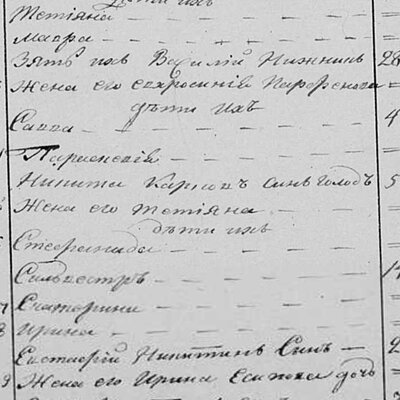 дѣти ихъ
Тетіяна
Мавра
Зять ихъ Василій Нижникъ 28
Жена его Евфросинія Парфенова
дѣти ихъ
Савва 4
Парасковія
Никита Карповъ синъ Голодъ 5
Жена его Тетіяна
дѣти ихъ
Стефанида
Сильвестръ 14
Екатерина
Ирина
Евстафій Никитинъ Синъ 2
9 Жена его Ирина Есипова дочь